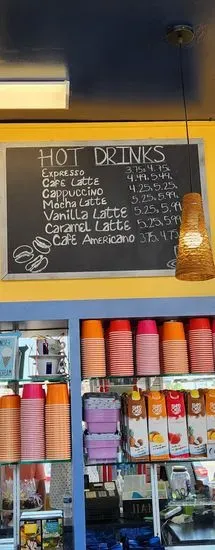 HOT DRINKS
Expresso 3.75, 4.75,
Cafe Latte 4.49, 5.49
Cappuccino 4.25, 5.25,
Mocha Latte 5.25, 5.99
Vanilla Latte 5.25, 5.99
Caramel Latte 5.25, 5.99
Cafe Americano 3.75, 4.75